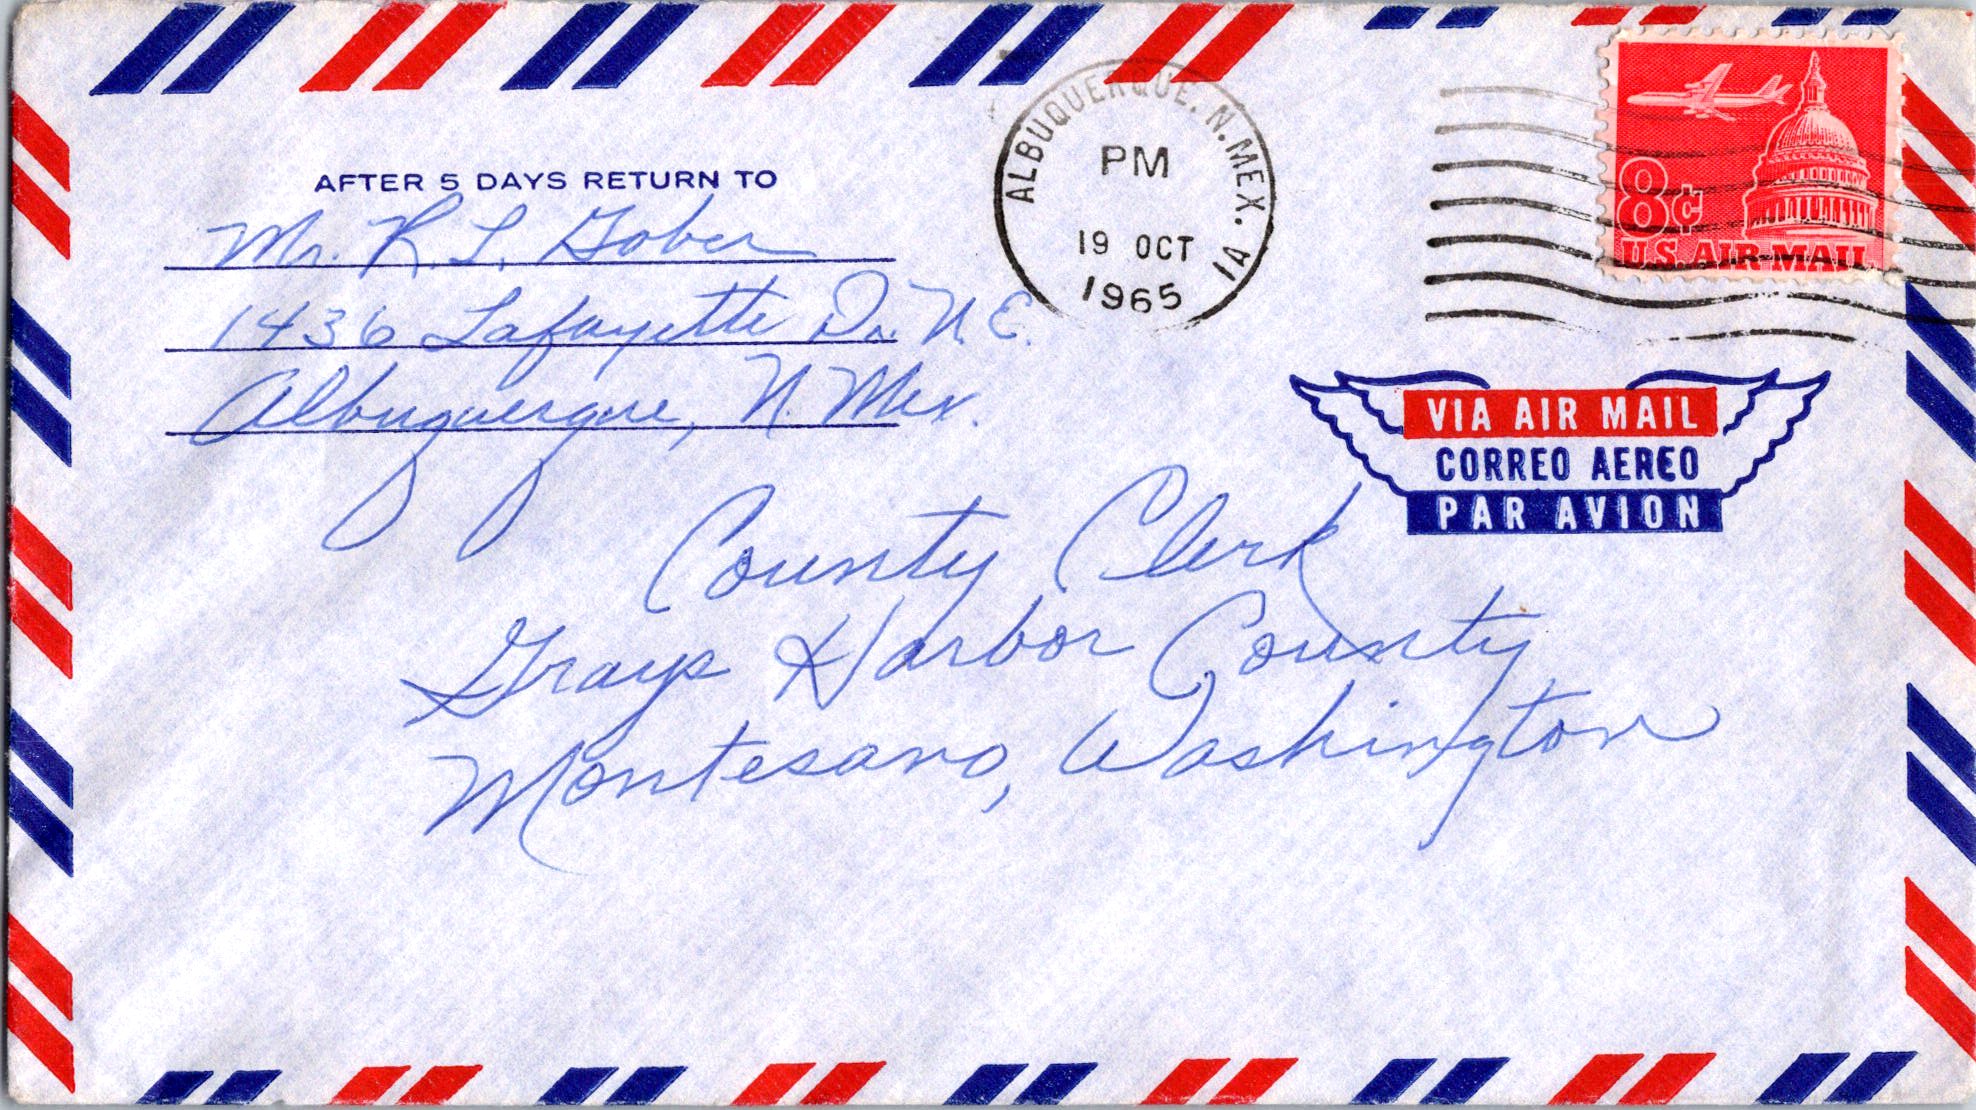 AFTER 5 DAYS RETURN TO
Mr. R. L. Gober
1436 Lafayette Dr. N.E.
Albuquerque, N. Mex.
ALBUQUERQUE, N.MEX. 1A
PM
19 OCT
1965
8¢
U.S. AIR MAIL
VIA AIR MAIL
CORREO AEREO
PAR AVION
County Clerk
Grays Harbor County
Montesano, Washington